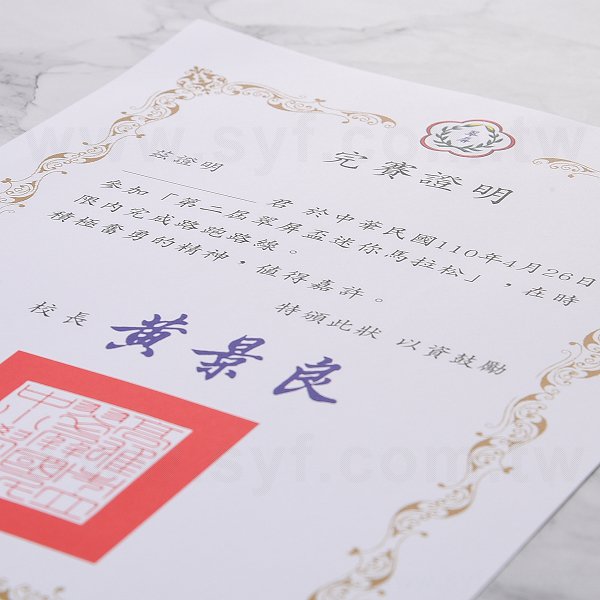 翠屏
完賽證明
茲證明
君 於中華民國110年4月26日
參加「第二屆翠屏盃迷你馬拉松」，在時
限內完成路跑路線。
積極奮勇的精神，值得嘉許。
特頒此狀 以資鼓勵
校長 黃景良
www.syf.com.tw
www.syf.com.tw